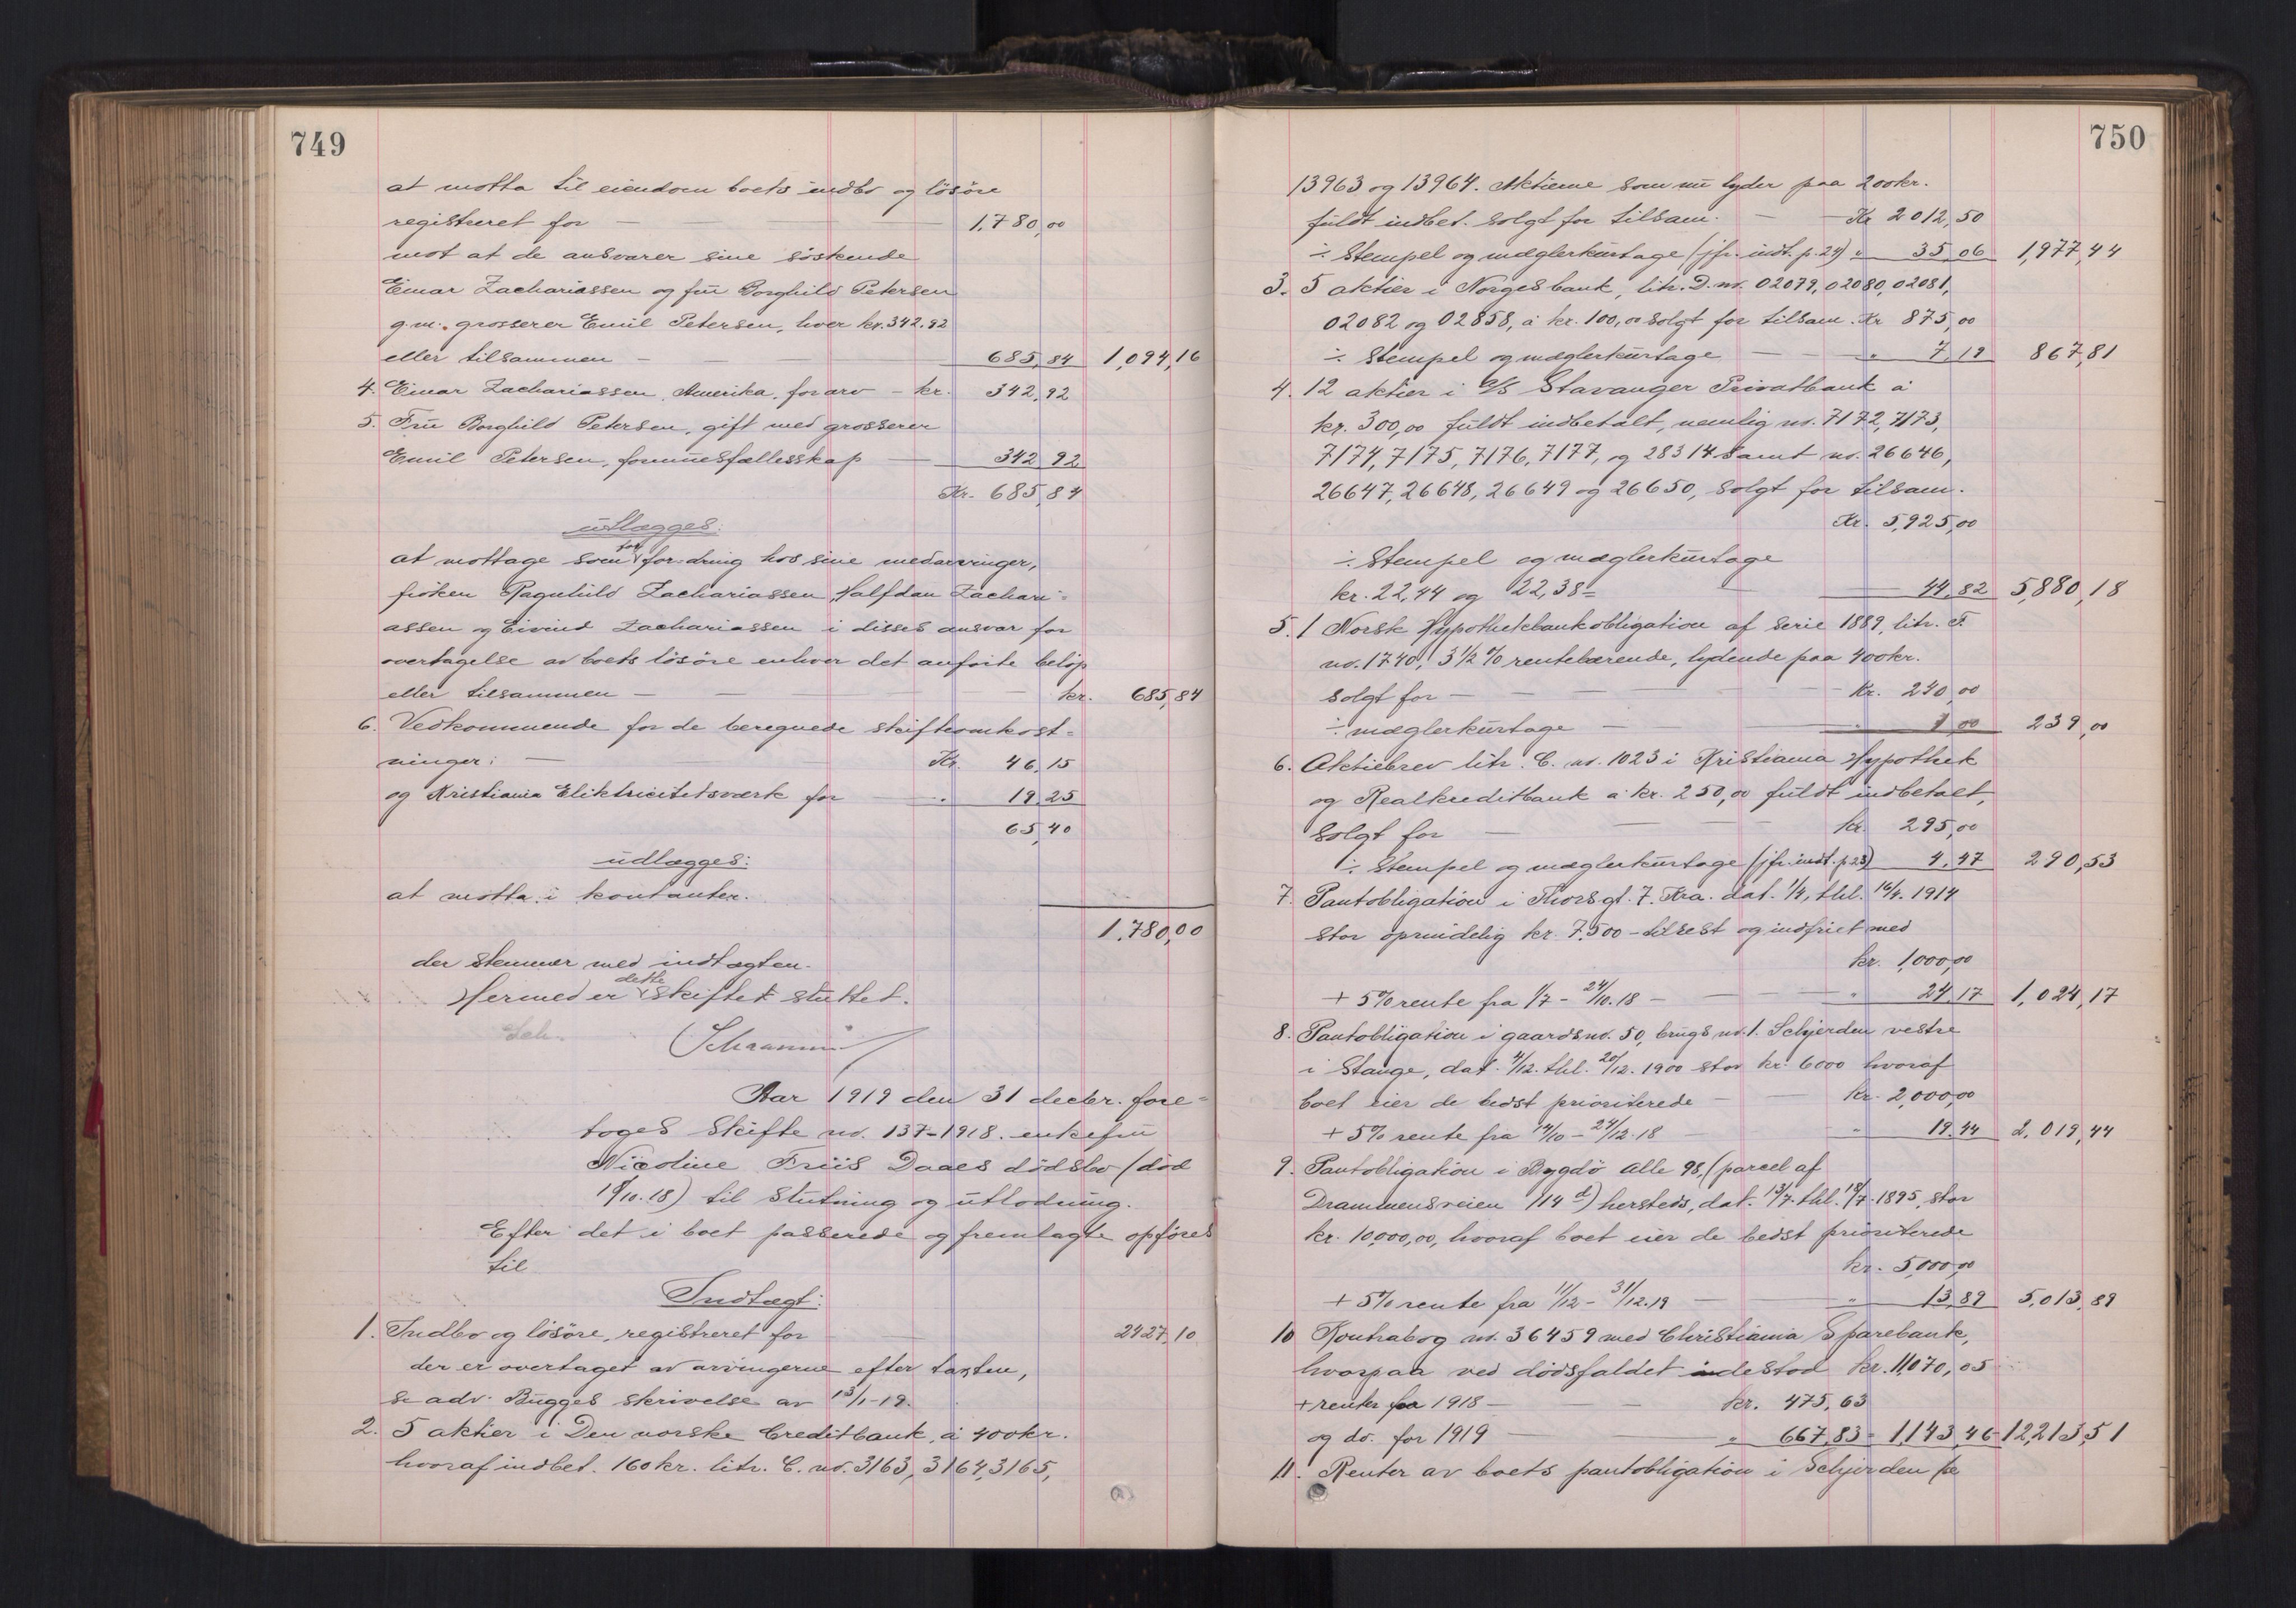 749
at motta til eiendom boets indbo og lösöre
registreret for — 1,780,00
mot at de ansvarer sine söskende
Einar Zachariassen og fru Borghild Petersen
g.m. grosserer Emil Petersen, hver kr. 342.92
eller tilsammen — 685,84 1,094,16
4. Einar Zachariassen, Amerika, for arv - kr. 342,92
5. Fru Borghild Petersen, gift med grosserer
Emil Petersen, formuesfællesskap — 342 92
Kr. 685,84
utlægges:
at mottage som for fordring hos sine medarvinger,
fröken Ragnhild Zachariassen, Halfdan Zachari=
assen og Eivind Zachariassen i disses ansvar for
overtagelse av boets lösöre enhver det anförte belöp
eller tilsammen — kr. 685,84
6. Vedkommende for de beregnede skifteomkost=
ninger: — Kr. 46,15
og Kristiania Eliktricitetsværk for — " 19,25
65,40
udlægges:
at motta i kontanter.
1,780,00
der stemmer med indtægten.
Hermed er dette skiftet sluttet.
Schramm
Aar 1919 den 31 decbr. fore=
toges skifte no. 137-1918. enkefru
Nicoline Friis Daaes dödsbo (död
19/10.18) til slutning og utlodning.
Efter det i boet passerede og fremlagte opföres
til
Indtægt:
1. Indbo og lösöre, registreret for — 2427,10
der er overtaget av arvingerne efter taxten,
se adv. Bugges skrivelse av 13/1-19.
2. 5 aktier i Den norske Creditbank, á 400kr.
hvoraf indbet. 160kr. litr. C. no. 3163, 3164, 3165,
750
13963 og 13964. Aktierne som nu lyder paa 200kr.
fuldt indbet. solgt for tilsam. — Kr 2012,50
÷ Stempel og mæglerkurtage (jfr. indt. p. 24) " 35,06 1,977,44
3. 5 aktier i Norges bank, litr. D. no. 02079, 02080, 02081,
02082 og 02858, á kr. 100,00 solgt for tilsam. Kr 875,00
÷ Stempel og mæglerkurtage — " 7,19 867,81
4. 12 aktier i A/S Stavanger Privatbank á
kr. 300,00 fuldt indbetalt, nemlig no. 7172, 7173,
7174, 7175, 7176, 7177, og 28314 samt no. 26646,
26647, 26648, 26649 og 26650, solgt for tilsam.
Kr. 5,925,00
÷ Stempel og mæglerkurtage
kr. 22,44 og 22,38= — 44,82 5,880,18
5. 1 Norsk Hypothekbankobligation af serie 1889, litr. F.
no. 1740, 3 1/2 % rentebærende, lydende paa 400kr.
solgt for — Kr. 240,00
÷ mæglerkurtage — " 1,00 239,00
6. Aktiebrev litr. C. no. 1023 i Kristiania Hypothek
og Realkreditbank á kr. 250,00 fuldt indbetalt,
solgt for — kr. 295,00
÷ Stempel og mæglerkurtage (jfr. indt. p 23) 4,47 290,53
7. Pantobligation i Thorsgt. 7. Kra. dat. 1/4, thl. 16/4. 1914
stor oprindelig kr. 7,500 - tilrest og indfriet med
kr. 1,000,00
+ 5% rente fra 1/7 - 24/10.18 — " 24,17 1,024,17
8. Pantobligation i gaardsno. 50, brugs no. 1. Schjerden vestre
i Stange, dat. 4/12. thl. 20/12. 1900 stor kr. 6000 hvoraf
boet eier de bedst prioriterede — kr. 2,000,00
+ 5% rente fra 14/10 - 24/12.18 — " 19.44 2,019,44
9. Pantobligation i Bygdö Alle 98, (parcel af
Drammensveien 114 d) hersteds, dat. 13/7. thl. 18/7. 1895, stor
kr. 10,000,00, hvoraf boet eier de bedst prioriterede
kr. 5,000,00
+ 5% rente fra 11/12 - 31/12.19 — " 13,89 5,013,89
10 Kontrabog no. 36459 med Christiania Sparebank,
hvorpaa ved dödsfaldet indestod kr. 11,070,05
+ renter for 1918 — kr. 475,63
og do. for 1919 — " 667,83 = 1,143,46 - 12,213,51
11. Renter av boets pantobligation i Schjerden fra